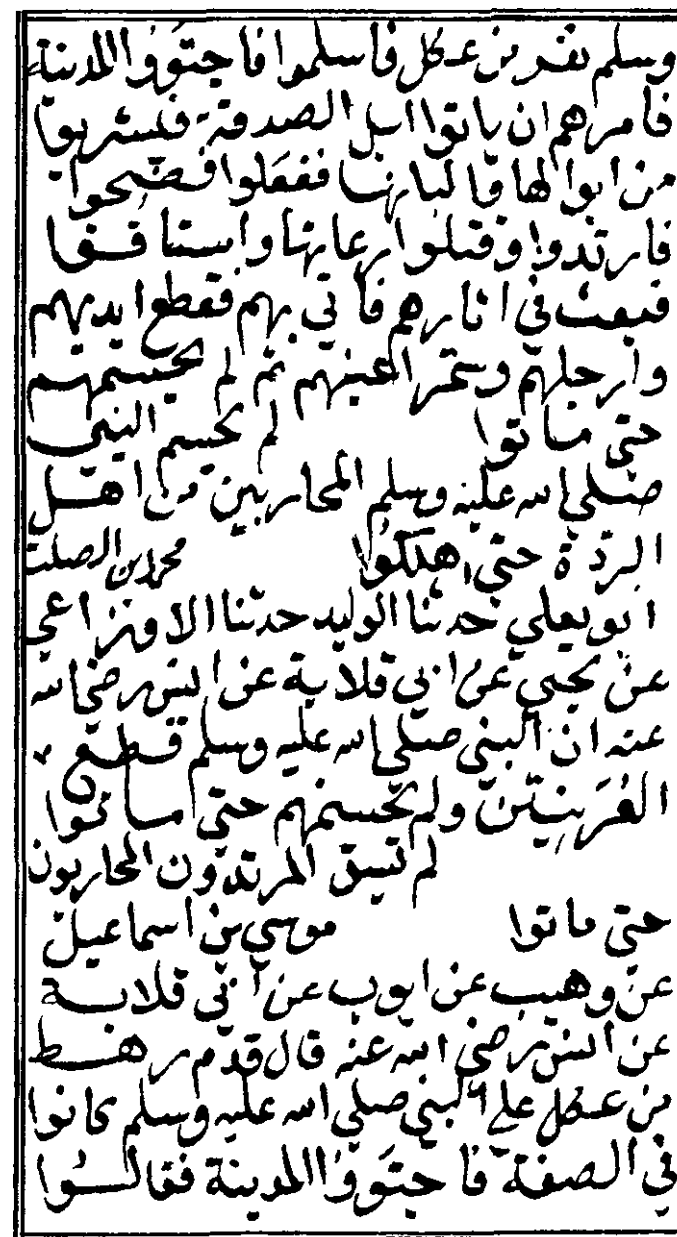 وسلم نفر من عكل فأسلموا فاجتَوَوُا المدينة
فأمرهم ان ياتوا ابل الصدقة فيشربوا
من ابوالها وألبانها ففعلوا فصَحّوا
فارتدوا وقتلوا رعاتها واستاقوا
فبعث في اثارهم فأتي بهم فقطع ايديهم
وارجلهم وسمر اعينهم ثم لم يحسمهم
حتى ماتوا لم يحسم النبي
صلي الله عليه وسلم المحاربين من اهل
الردة حتى اهلكوا محمد بن الصلت
ابو يعلي حدثنا الوليد حدثنا الاوزاعي
عن يحيي عن ابي قلابة عن انس رضي الله
عنه ان النبي صلي الله عليه وسلم قطع
العُرَنِيّين ولم يحسمهم حتى ماتوا
لم يسق المرتدون المحاربون
حتى ماتوا موسي بن اسماعيل
عن وهيب عن ايوب عن أبي قلابة
عن انس رضي الله عنه قال قدم رهط
من عكل علي النبي صلي الله عليه وسلم كانوا
في الصفة فاجتَوَوُا المدينة فقالوا